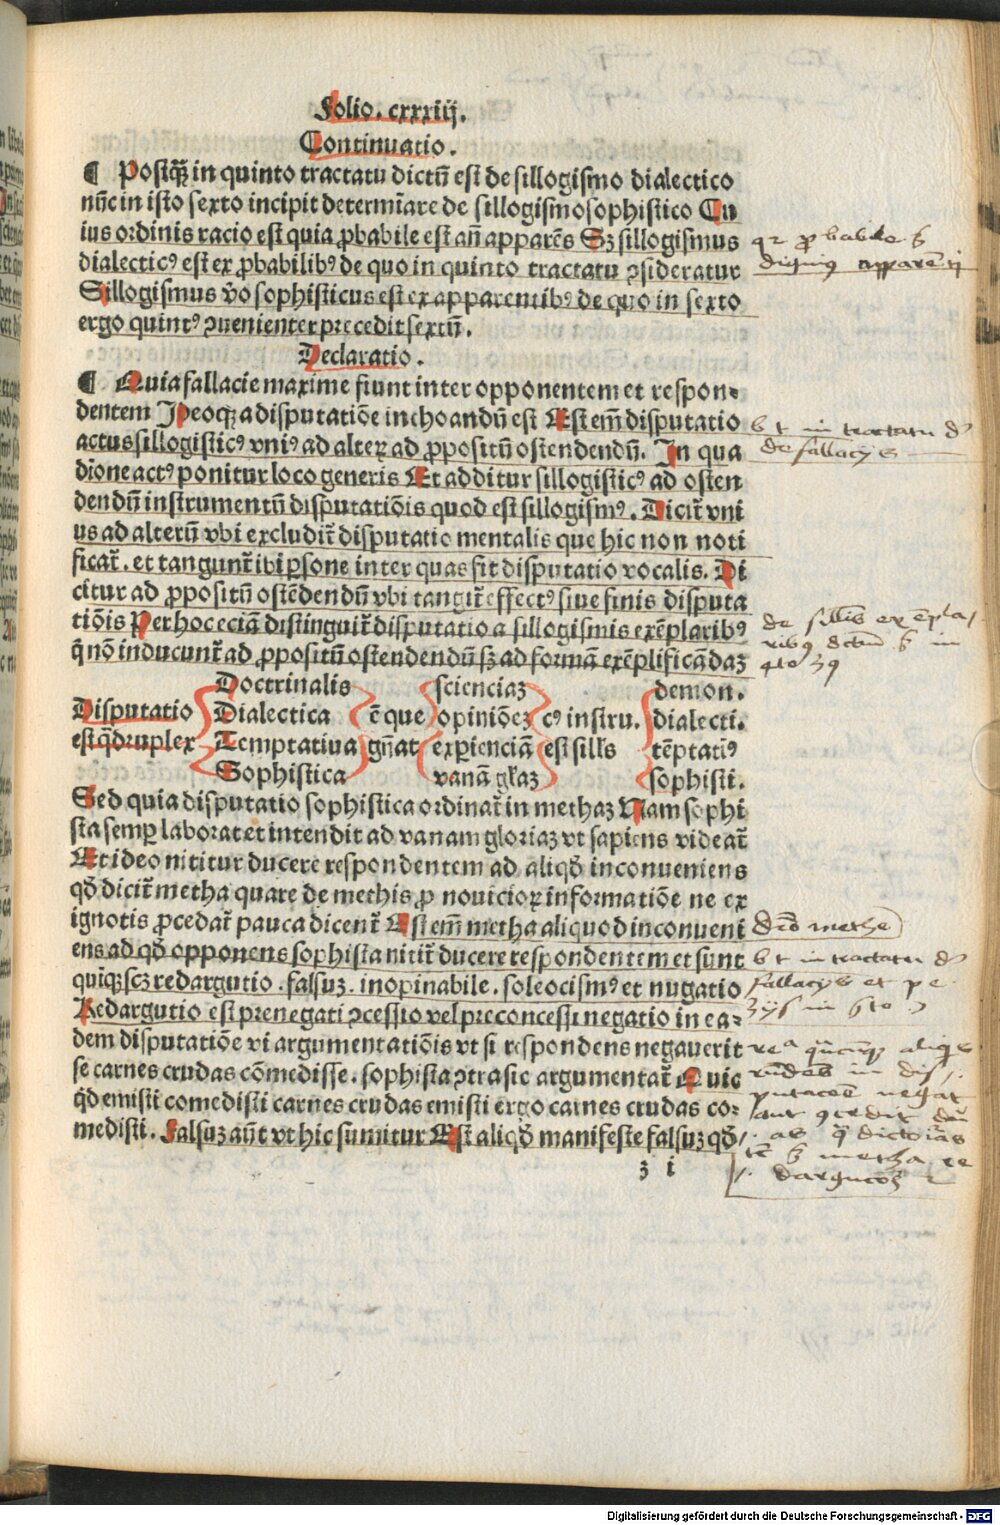 Folio. cxxxiij.
Continuatio.
¶ Postq̃ȝ in quinto tractatu dictũ est de sillogismo dialectico
nũc in isto sexto incipit determĩare de sillogismo sophistico Cu
ius ordinis racio est quia ꝓbabile est añ apparẽs Sȝ sillogismus
dialecticꝰ est ex ꝓbabilibꝰ de quo in quinto tractatu ꝯsideratur
Sillogismus v̾o sophisticus est ex apparentibꝰ de quo in sexto
ergo quintꝰ ꝯuenienter precedit sextũ.
Declaratio.
¶ Quia fallacie maxime fiunt inter opponentem et respon-
dentem Ideoqȝ a disputatiõe inchoandũ est Est em̃ disputatio
actus sillogisticꝰ vniꝰ ad alteꝝ ad ꝓpositũ ostendendũ. In qua
diõne actꝰ ponitur loco generis Et additur sillogisticꝰ ad osten
dendũ instrumentũ disputatiõis quod est sillogismꝰ. Dicit̃ vni
us ad alterũ vbi excludit̃ disputatio mentalis que hic non noti
ficat̃. et tangunt̃ ibi ꝑsone inter quas fit disputatio vocalis. Di
citur ad ꝓpositũ ostẽdendũ vbi tangit̃ effectꝰ siue finis disputa
tiõis Per hoc eciã distinguit̃ disputatio a sillogismis exẽplaribꝰ
q̃ nõ inducunt̃ ad ꝓpositũ ostendendũ sȝ ad formã exẽplificãdaȝ
Doctrinalis scienciaȝ demon.
Disputatio Dialectica ẽ que opiniõeȝ cꝰ instru. dialecti.
est q̃druplex Temptatiua gñat expienciã est sills tẽptatiꝰ
Sophistica vanã gl̃aȝ sophisti.
Sed quia disputatio sophistica ordinat̃ in methaȝ Nam sophi
sta semꝑ laborat et intendit ad vanam gloriaȝ vt sapiens videat̃
Et ideo nititur ducere respondentem ad aliqđ inconueniens
qđ dicit̃ metha quare de methis ꝓ nouicioꝝ informatiõe ne ex
ignotis ꝓcedat̃ pauca dicent̃ Est em̃ metha aliquod inconueni
ens ad qđ opponens sophista nitit̃ ducere respondentem et sunt
quĩqȝ scȝ redargutio. falsuȝ. inopinabile. soleocismꝰ et nugatio
Redargutio est prenegati ꝯcessio vel preconcessi negatio in ea-
dem disputatiõe vi argumentatiõis vt si respondens negauerit
se carnes crudas cõmedisse. sophista ꝯtra sic argumentat̃ Quic
q̃d emisti comedisti carnes crudas emisti ergo carnes crudas co-
medisti. Falsuȝ aũt vt hic sumitur Est aliqđ manifeste falsuȝ qđ
ȝ i
qꝛ ꝓbabile
dignius apparẽti
in tractatu
de fallacijs
de sillis exẽpla
ribꝰ dictum in
metha
in tractatu
fallacijs et
aliqs
in dis
putacoẽ negat
aut ꝯcedit
metha re
dargucõ
Digitalisierung gefördert durch die Deutsche Forschungsgemeinschaft - DFG